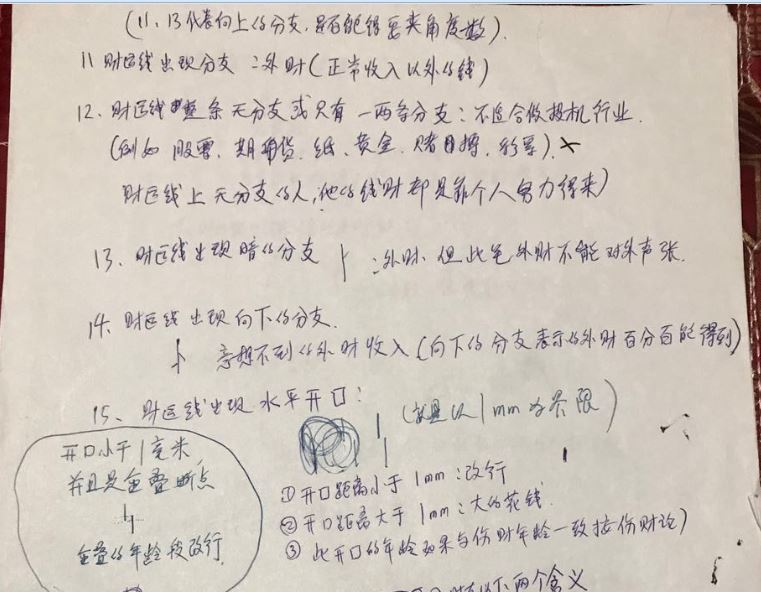 (11、13代表向上的分支,是否能得要夹角度数).
11 财运线出现分支:外财(正常收入以外的钱)
12、财运线整条无分支或只有一两条分支:不适合做投机行业.
(例如 股票、期货、纸、黄金、赌博、彩票).×
财运线上无分支的人,他的钱财都是靠个人努力得来)
13、财运线出现暗的分支 :外财.但此笔外财不能对外声张.
14、财运线出现向下的分支.
意想不到的外财收入(向下的分支表示的外财百分百能得到)
15、财运线出现水平开口:
(就是以1mm为界限)
开口小于1毫米
并且是重叠断点
重叠的年龄段改行.
①开口距离小于1mm:改行
②开口距离大于1mm:大的花钱.
③此开口的年龄如果与伤财年龄一致按伤财论)
两个含义